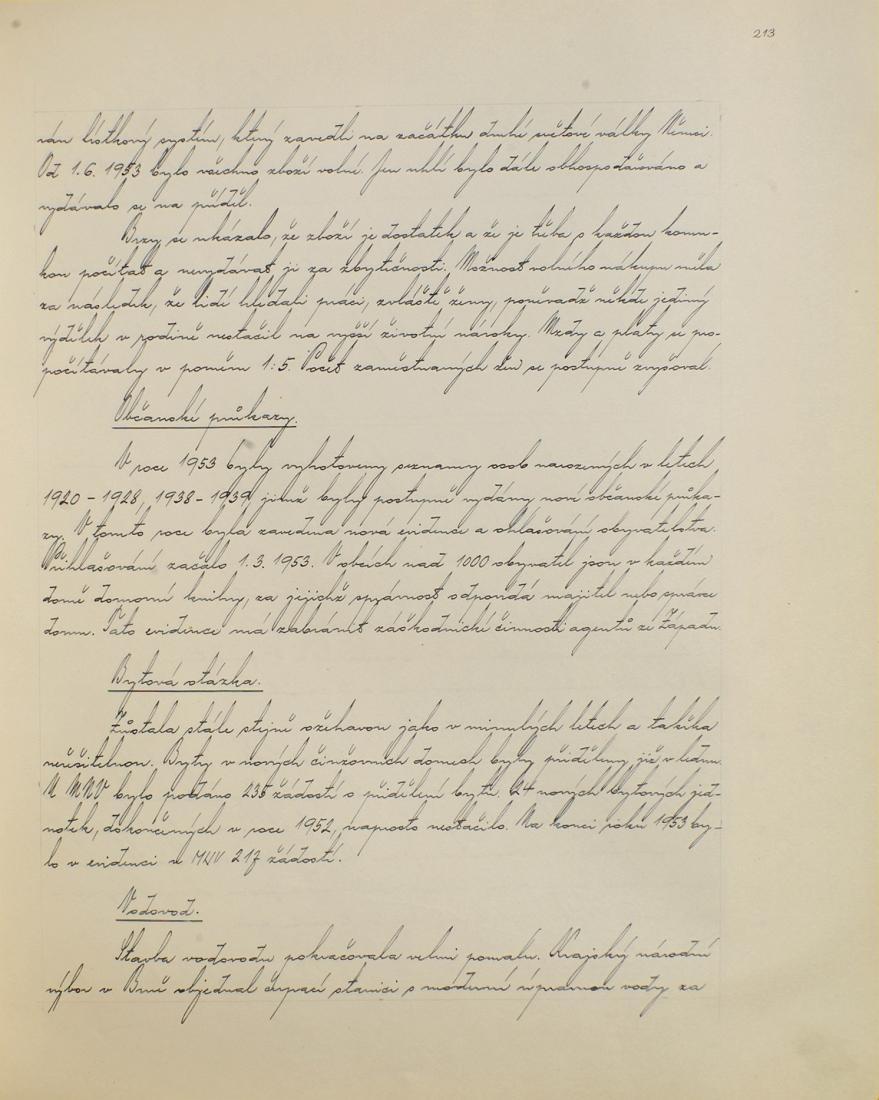 213
ván lístkový systém, který zavedli na začátku druhé světové války Němci.
Od 1.6. 1953 bylo všechno zboží volné. Jen uhlí bylo dále obhospodařováno a
vydávalo se na příděl.
Brzy se ukázalo, že zboží je dostatek a že je třeba s každou korun-
kou počítat a nevydávat ji za zbytečnosti. Možnost volného nákupu měla
za následek, že lidé hledali práci, zvláště ženy, poněvadž někde jediný
výdělek v rodině nestačil na vyšší životní nároky. Mzdy a platy se pro-
počítávaly v poměru 1:5. Počet zaměstnaných žen se postupně zvyšoval.
Občanské průkazy.
V roce 1953 byly vyhotoveny seznamy osob narozených v letech
1920 - 1928, 1938 - 1939, jimž byly postupně vydány nové občanské průka-
zy. V tomto roce byla zavedena nová evidence a ohlašování obyvatelstva.
Přihlašování začalo 1.3. 1953. V obcích nad 1000 obyvatel jsou v každém
domě domovní knihy, za jejichž správnost odpovídá majitel nebo správce
domu. Tato evidence má zabránit záškodnické činnosti agentů ze Západu.
Bytová otázka.
Zůstala stále stejně ožehavou jako v minulých letech a takřka
neřešitelnou. Byty v nových činžovních domech byly přiděleny již v lednu.
U MNV bylo podáno 235 žádostí o přidělení bytu. 24 nových bytových jed-
notek, dokončených v roce 1952, naprosto nestačilo. Na konci roku 1953 by-
lo v evidenci u MNV 217 žádostí.
Vodovod.
Stavba vodovodu pokračovala velmi pomalu. Krajský národní
výbor v Brně objednal čerpací stanici s moderní úpravnou vody za